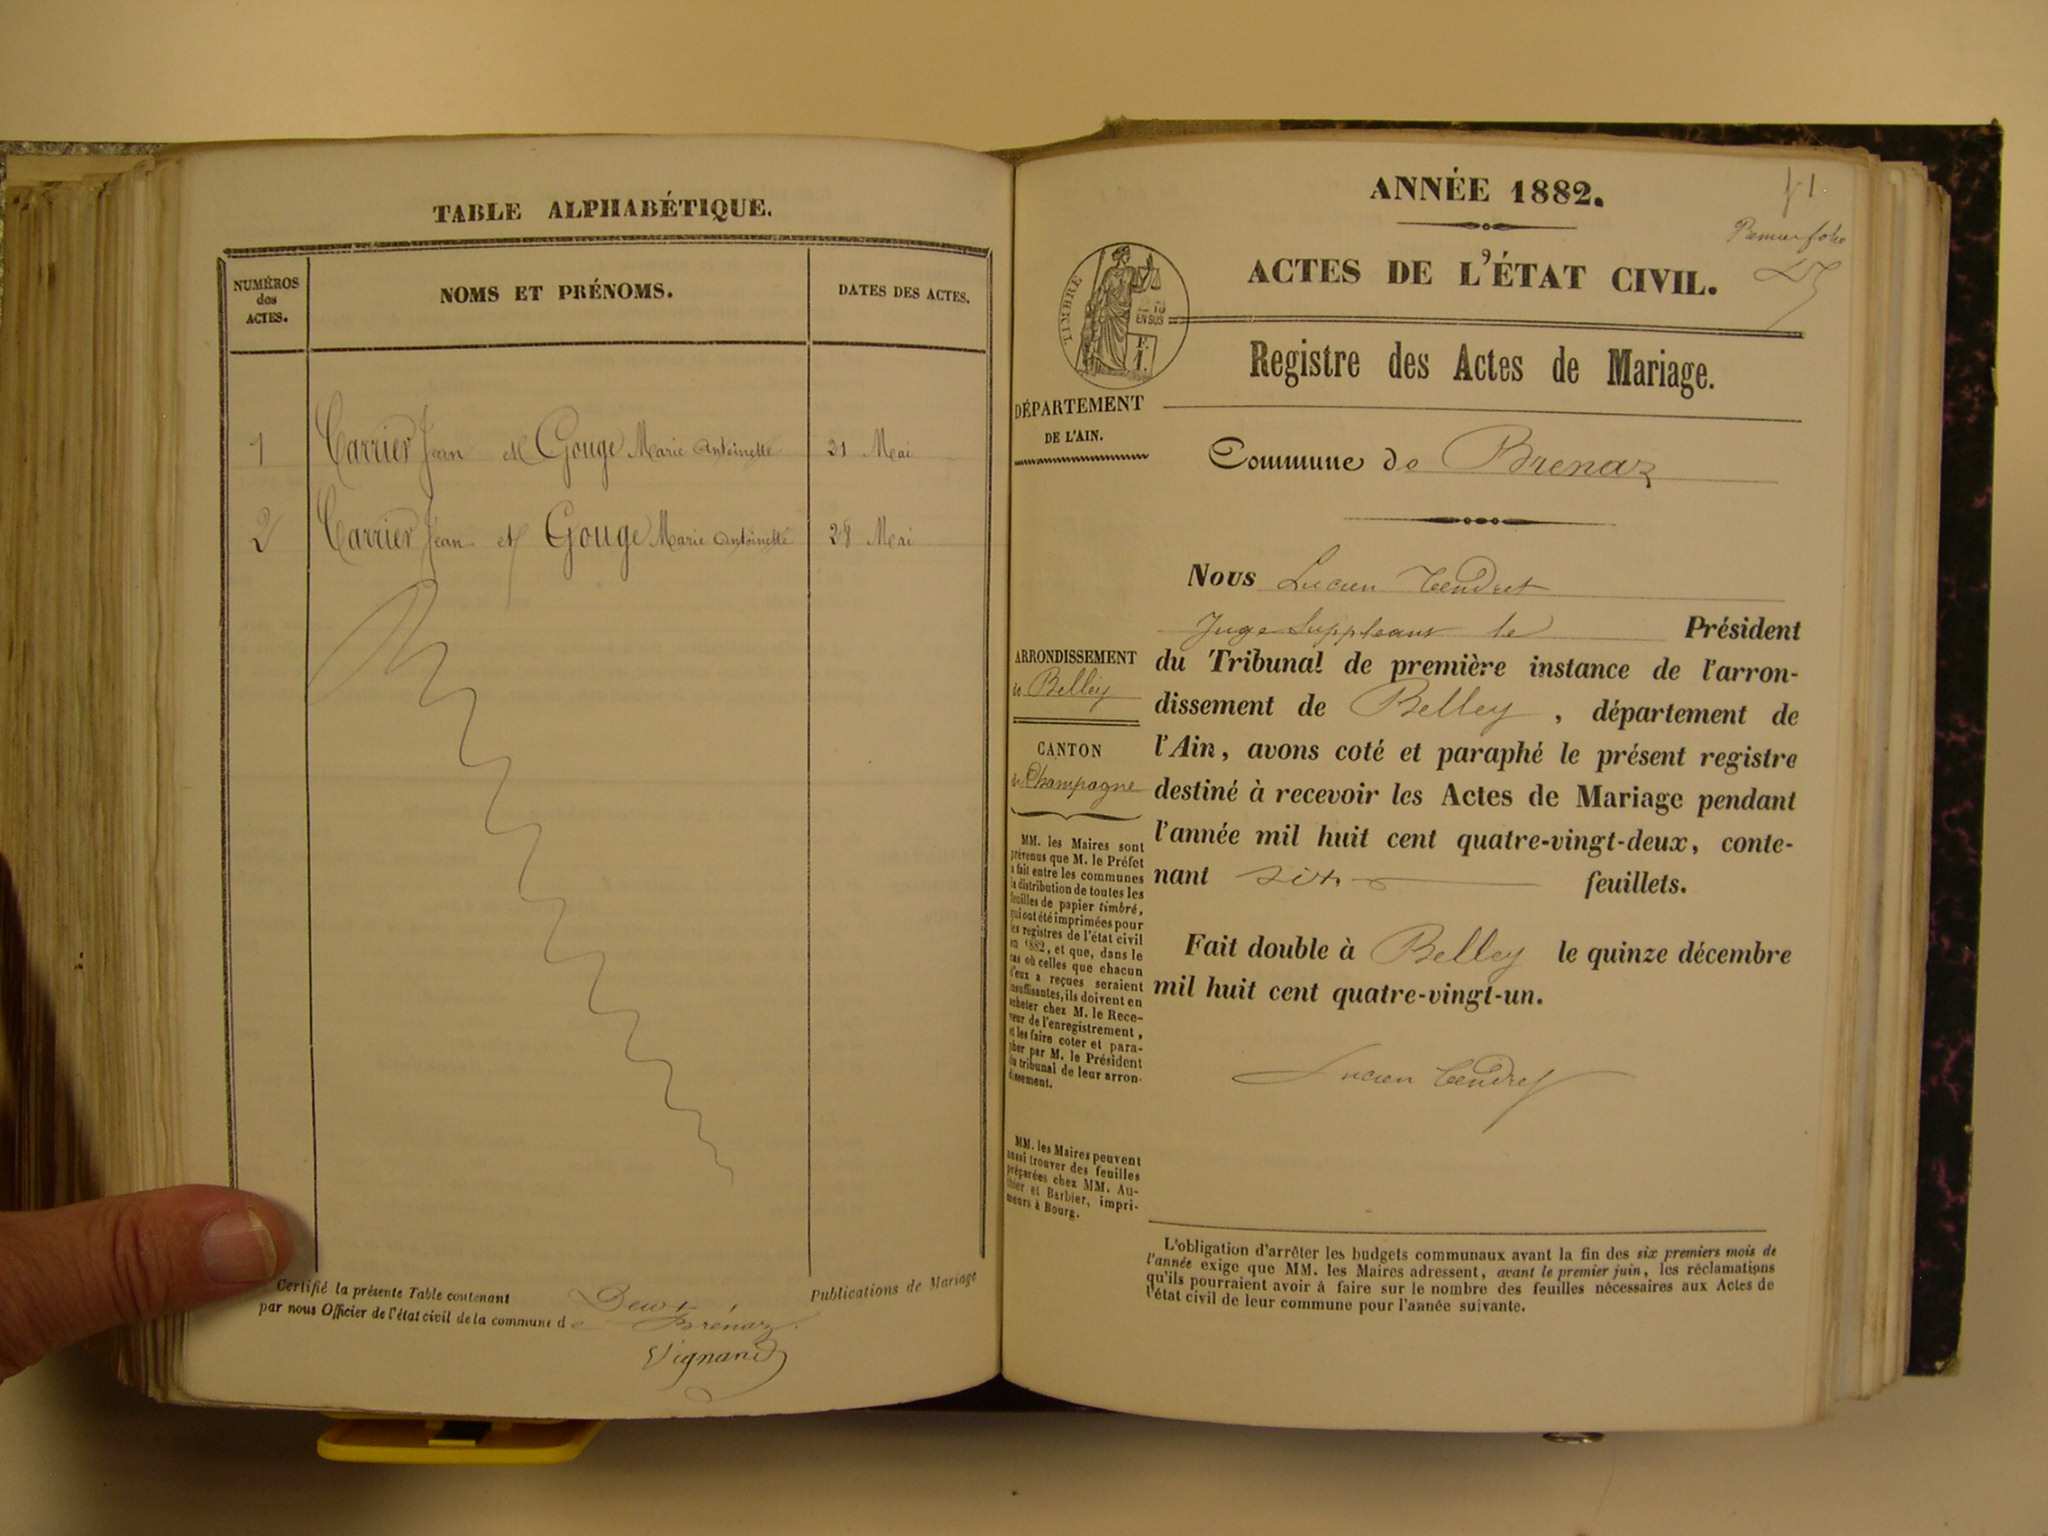 TABLE ALPHABÉTIQUE.
NUMÉROS
des
ACTES.
NOMS ET PRÉNOMS.
DATES DES ACTES.
1 Carrier Jean et Gouge Marie Antoinette 21 Mai
2 Carrier Jean et Gouge Marie Antoinette 28 Mai
Certifié la présente Table contenant Deux Publications de Mariage
par nous Officier de l'état civil de la commune de Brénaz.
Vignand
ANNÉE 1882.
1
Premier folio
ACTES DE L'ÉTAT CIVIL.
TIMBRE
EN SUS
Registre des Actes de Mariage.
DÉPARTEMENT
DE L'AIN.
Commune de Brenaz
Nous Lucien Tendret
Juge Suppléant le Président
du Tribunal de première instance de l'arron-
dissement de Belley , département de
l'Ain, avons coté et paraphé le présent registre
destiné à recevoir les Actes de Mariage pendant
l'année mil huit cent quatre-vingt-deux, conte-
nant six feuillets.
Fait double à Belley le quinze décembre
mil huit cent quatre-vingt-un.
Lucien Tendret
ARRONDISSEMENT
de Belley
CANTON
de Champagne
MM. les Maires sont
prévenus que M. le Préfet
a fait entre les communes
la distribution de toutes les
feuilles de papier timbré,
qui ont été imprimées pour
les registres de l'état civil
en 1882, et que, dans le
cas où celles que chacun
d'eux a reçues seraient
insuffisantes, ils doivent en
acheter chez M. le Rece-
veur de l'enregistrement,
et les faire coter et para-
pher par M. le Président
du tribunal de leur arron-
dissement.
MM. les Maires peuvent
aussi trouver des feuilles
préparées chez MM. Au-
thier et Barbier, impri-
meurs à Bourg.
L'obligation d'arrêter les budgets communaux avant la fin des six premiers mois de
l'année exige que MM. les Maires adressent, avant le premier juin, les réclamations
qu'ils pourraient avoir à faire sur le nombre des feuilles nécessaires aux Actes de
l'état civil de leur commune pour l'année suivante.